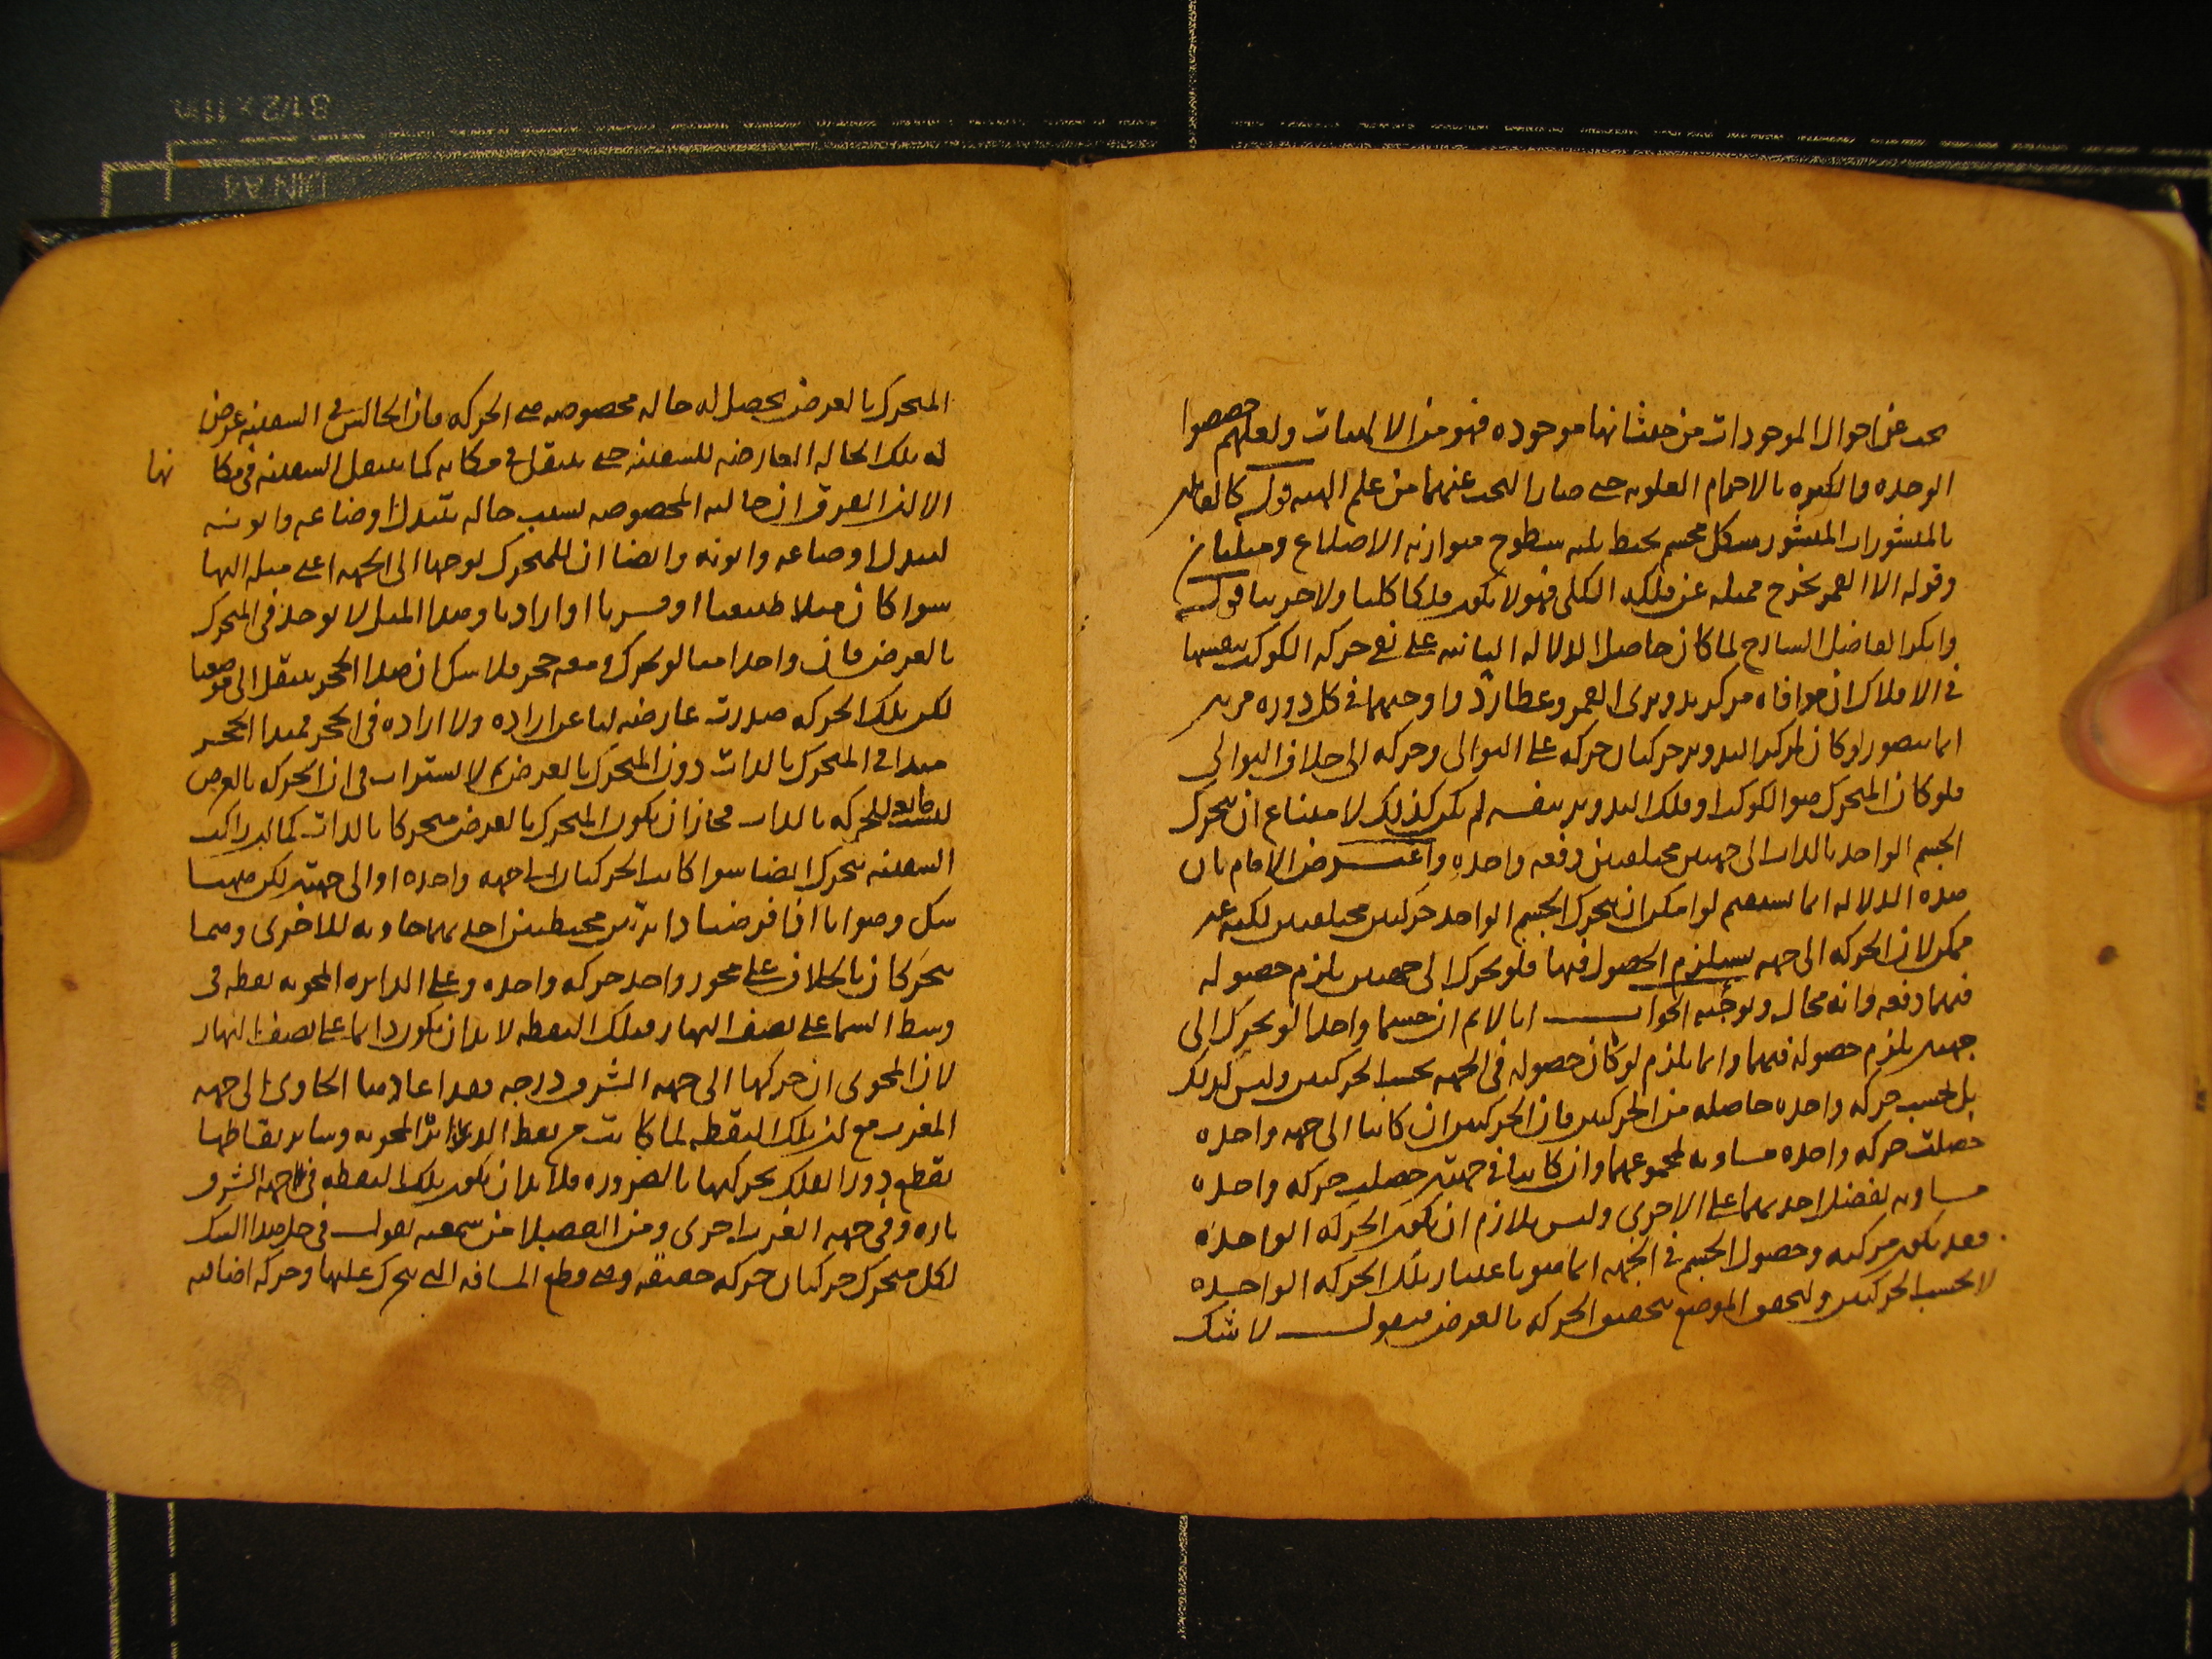 عن احوال الموجودات من حيث انها موجوده فهو من الالهيات ولعلهم خصصوا
الوحده والكثره بالاجرام العلويه حتى صار البحث عنهما من علم الهيئه قوله
بالمنشورات المنشور شكل مجسم يحيط به سطوح متوازيه الاضلاع ومثلثان
وقوله الا القمر يخرج عن فلكه الكلى فهو لا يكون فلكا كليا ولا جزييا قوله
وانكر الفاضل الشارح لما كان حاصل الدلاله الثانيه على نفى حركه الكوكب بنفسها
فى الافلاك ان موافاه مركز تدويرى القمر وعطارد اوجيهما فى كل دوره مرتين
انما يتصور لو كان لمركز التدوير حركتان حركه على التوالى وحركه الى خلاف التوالى
فلو كان المتحرك هو الكوكب او فلك التدوير بنفسه لم يكن كذلك لامتناع ان يتحرك
الجسم الواحد بالذات الى جهتين مختلفتين دفعه واحده واعترض الامام بان
هذه الدلاله انما يستقيم لو امكن ان يتحرك الجسم الواحد حركتين مختلفتين لكنه غير
ممكن لان الحركه الى جهه يستلزم الحصول فيها فلو تحرك الى جهتين يلزم حصوله
فيهما دفعه وانه محال وتوجيه الجواب انا لا نم ان جسما واحدا لو تحرك الى
جهتين يلزم حصوله فيهما وانما يلزم لو كان حصوله فى الجهه بحسب الحركتين وليس كذلك
بل بحسب حركه واحده حاصله من الحركتين فان الحركتين ان كانتا الى جهه واحده
حصلت حركه واحده مساويه لمجموعهما وان كانتا فى جهتين حصلت حركه واحده
مساويه لفضل احديهما على الاخرى وليس بلازم ان يكون الحركه الواحده
فقد يكون مركبه وحصول الجسم فى الجهه انما هو باعتبار تلك الحركه الواحده
لا بحسب الحركتين ولتحقق الموضع تحقيق الحركه بالعرض فنقول لا شك
المتحرك بالعرض يحصل له حاله مخصوصه هى الحركه فان الجالس فى السفينه عرض
له تلك الحاله العارضه للسفينه حتى ينتقل فى مكانه كما ينتقل السفينه فى مكا نها
الا ان الفرق ان حالته المخصوصه بسبب حاله تتبدل اوضاعه وايونه
لتبدل اوضاعه وايونه وايضا ان للمتحرك توجها الى الجهه اعنى ميله اليها
سوا كان ميلا طبيعيا او قسريا او اراديا وهذا الميل لا يوجد فى المتحرك
بالعرض فان واحدا منا لو تحرك ومعه حجر فلا شك ان هذا الحجر ينتقل الى موضعنا
لكن تلك الحركه صدرت عارضه لنا عن اراده ولا اراده فى الحجر فمبدا الحجر
مبدا فى المتحرك بالذات دون المتحرك بالعرض ثم لا يستراب فى ان الحركه بالعرض
للحركه بالذات فجاز ان يكون المتحرك بالعرض متحركا بالذات كما ان راكب
السفينه يتحرك ايضا سوا كانت الحركتان الى جهه واحده او الى جهتين لكن ههنا
شك وهو انا اذا فرضنا دايرتين محيطتين احديهما حاويه للاخرى وهما
يتحركان بالخلاف على محور واحد حركه واحده وعلى الدايره المحويه نقطه فى
وسط السما على نصف النهار فتلك النقطه لا بد ان يكون دايما على نصف النهار
لان المحوى ان حركها الى جهه الشرق درجه فقد اعادها الحاوى الى جهه
المغرب مع ان تلك النقطه لما كانت من نقط الدايره المحويه وساير نقاطها
يقطع دور الفلك بحركتها بالضروره فلا بد ان يكون تلك النقطه فى جهه الشرق
تاره وفى جهه الغرب اخرى ومن الفضلا من سمعته يقول فى حل هذا الشك
لكل متحرك حركتان حركه حقيقيه وهى قطع المسافه التى يتحرك عليها وحركه اضافيه